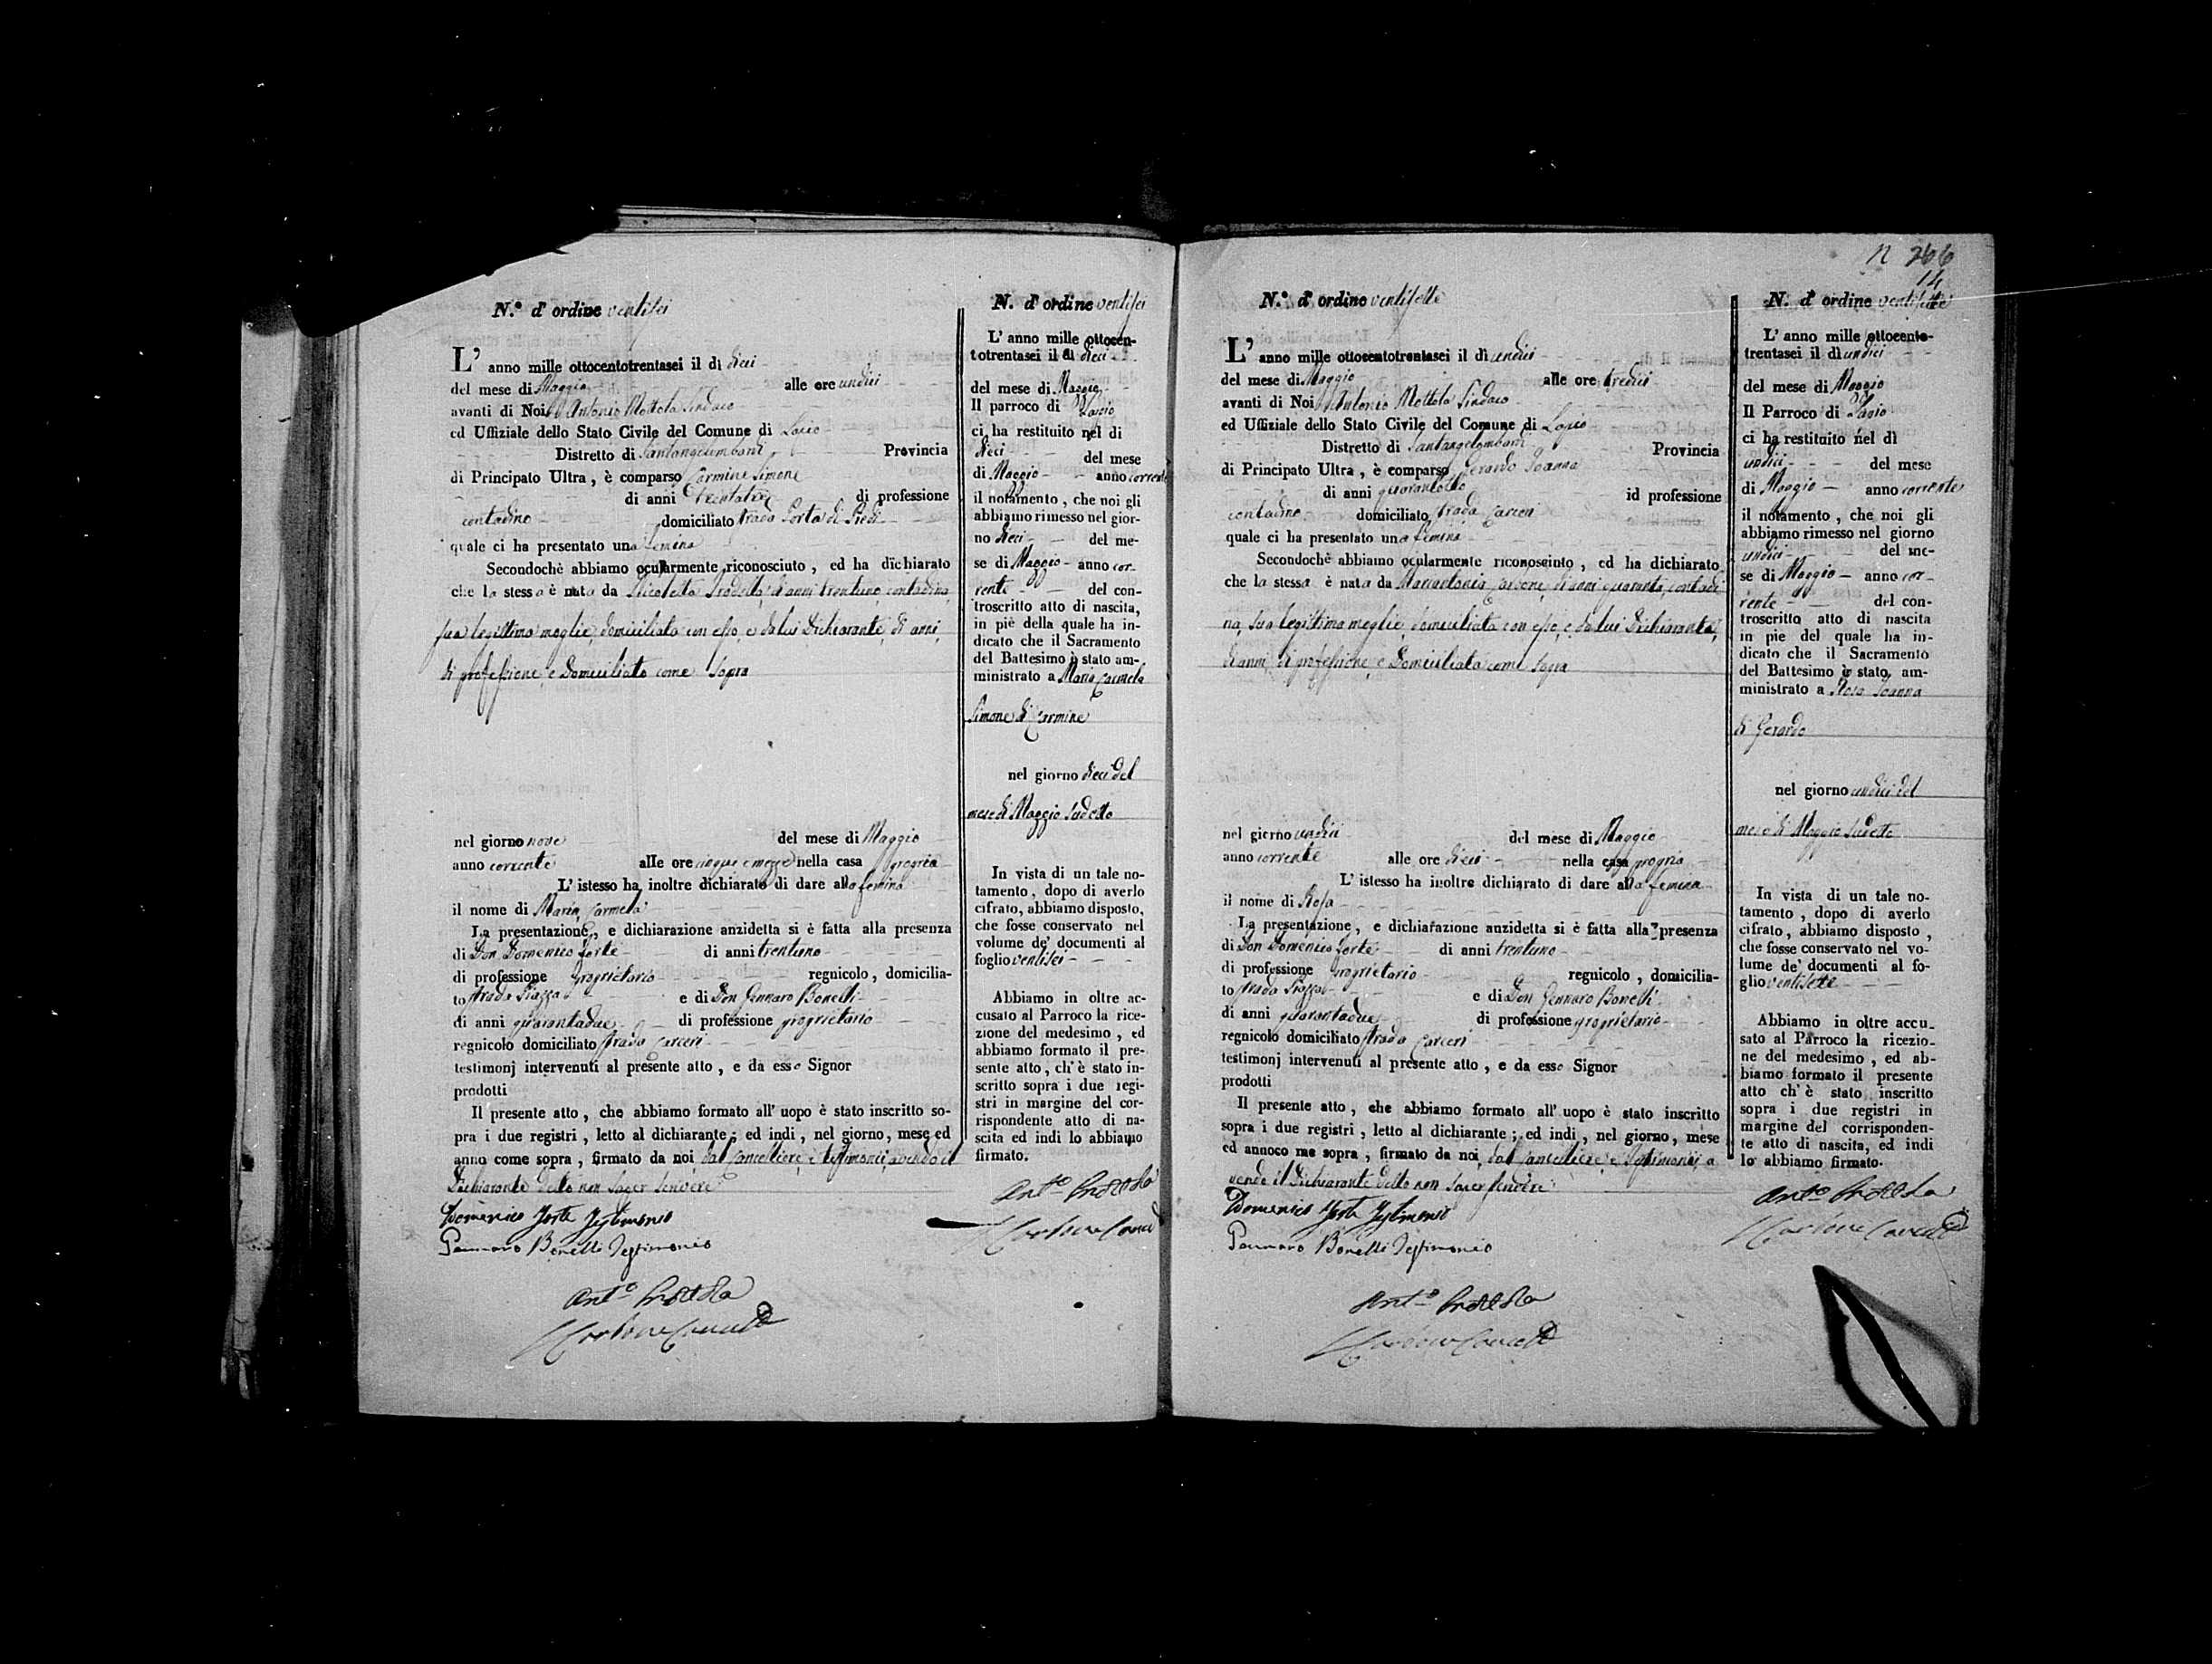 N.º d' ordine ventisei
L' anno mille ottocentotrentasei il dì dieci
del mese di Maggio alle ore undici
avanti di Noi Antonio Mottola Sindaco
ed Uffiziale dello Stato Civile del Comune di Lapio
Distretto di Santangelombardi Provincia
di Principato Ultra , è comparso Carmine Simone
di anni trentatre di professione
contadino domiciliato strada Porta di Piedi
quale ci ha presentato una femina
Secondochè abbiamo ocularmente riconosciuto , ed ha dichiarato
che la stessa è nata da Nicoletta di anni trentuno, contadina,
sua legittima moglie, domiciliata con esso, e da lui Dichiarante, di anni,
di professione, e Domiciliato come sopra
nel giorno nove del mese di Maggio
anno corrente alle ore cinque e mezze nella casa propria
L' istesso ha inoltre dichiarato di dare alla femina
il nome di Maria Carmela
La presentazione , e dichiarazione anzidetta si è fatta alla presenza
di Don Domenico Forte di anni trentuno
di professione proprietario regnicolo , domicilia-
to strada Piazza e di Don Gennaro Bonelli
di anni quarantadue di professione proprietario
regnicolo domiciliato strada Carceri
testimonj intervenuti al presente atto , e da esso Signor
prodotti
Il presente atto , che abbiamo formato all' uopo è stato inscritto so-
pra i due registri , letto al dichiarante ; ed indi , nel giorno , mese ed
anno come sopra , firmato da noi, dal Cancelliere, e testimonii, avendo il
Dichiarante detto non saper scrivere
Domenico Forte Testimonio
Gennaro Bonelli Testimonio
Ant.º Mottola
N. d' ordine ventisei
L' anno mille ottocen-
totrentasei il dì dieci
del mese di Maggio
Il parroco di Lapio
ci ha restituito nel dì
dieci del mese
di Maggio anno corrente
il notamento , che noi gli
abbiamo rimesso nel gior-
no dieci del me-
se di Maggio anno cor-
rente del con-
troscritto atto di nascita,
in piè della quale ha in-
dicato che il Sacramento
del Battesimo è stato am-
ministrato a Maria Carmela
Simone di Carmine
nel giorno dieci del
mese di Maggio sudetto
In vista di un tale no-
tamento , dopo di averlo
cifrato, abbiamo disposto,
che fosse conservato nel
volume de' documenti al
foglio ventisei
Abbiamo in oltre ac-
cusato al Parroco la rice-
zione del medesimo , ed
abbiamo formato il pre-
sente atto, ch' è stato in-
scritto sopra i due regi-
stri in margine del cor-
rispondente atto di na-
scita ed indi lo abbiamo
firmato.
Ant.º Mottola
N.º d' ordine ventisette
L' anno mille ottocentotrentasei il dì undici
del mese di Maggio alle ore tredici
avanti di Noi Antonio Mottola Sindaco
ed Uffiziale dello Stato Civile del Comune di Lapio
Distretto di Santangelombardi Provincia
di Principato Ultra , è comparso Gerardo Ioanna
di anni quarantotto id professione
contadino domiciliato strada Carceri
quale ci ha presentato una femina
Secondochè abbiamo ocularmente riconosciuto , ed ha dichiarato
che la stessa è nata da Mariantonia Carbone, di anni quaranta, contadi
na, sua legittima moglie, domiciliata con esso, e da lui Dichiarante,
di anni, di professione, e Domiciliato come sopra
nel giorno undici del mese di Maggio
anno corrente alle ore dieci nella casa propria
L' istesso ha inoltre dichiarato di dare alla femina
il nome di Rosa
La presentazione , e dichiarazione anzidetta si è fatta alla presenza
di Don Domenico Forte di anni trentuno
di professione proprietario regnicolo , domicilia-
to strada Piazza e di Don Gennaro Bonelli
di anni quarantadue di professione proprietario
regnicolo domiciliato strada Carceri
testimonj intervenuti al presente atto , e da esso Signor
prodotti
Il presente atto , che abbiamo formato all' uopo è stato inscritto
sopra i due registri , letto al dichiarante ; ed indi , nel giorno , mese
ed annoco me sopra , firmato da noi, dal Cancelliere, e testimonii, a
vendo il Dichiarante detto non saper scrivere
Domenico Forte Testimonio
Gennaro Bonelli Testimonio
Ant.º Mottola
n 266
14
N. d' ordine ventisette
L' anno mille ottocento-
trentasei il dì undici
del mese di Maggio
Il Parroco di Lapio
ci ha restituito nel dì
undici del mese
di Maggio anno corrente
il notamento , che noi gli
abbiamo rimesso nel giorno
undici del me-
se di Maggio anno cor-
rente del con-
troscritto atto di nascita
in pie del quale ha in-
dicato che il Sacramento
del Battesimo è stato am-
ministrato a Rosa Ioanna
di Gerardo
nel giorno undici del
mese di Maggio sudetto
In vista di un tale no-
tamento , dopo di averlo
cifrato , abbiamo disposto ,
che fosse conservato nel vo-
lume de' documenti al fo-
glio ventisette
Abbiamo in oltre accu-
sato al Parroco la ricezio-
ne del medesimo , ed ab-
biamo formato il presente
atto ch' è stato inscritto
sopra i due registri in
margine del corrisponden-
te atto di nascita, ed indi
lo abbiamo firmato.
Ant.º Mottola